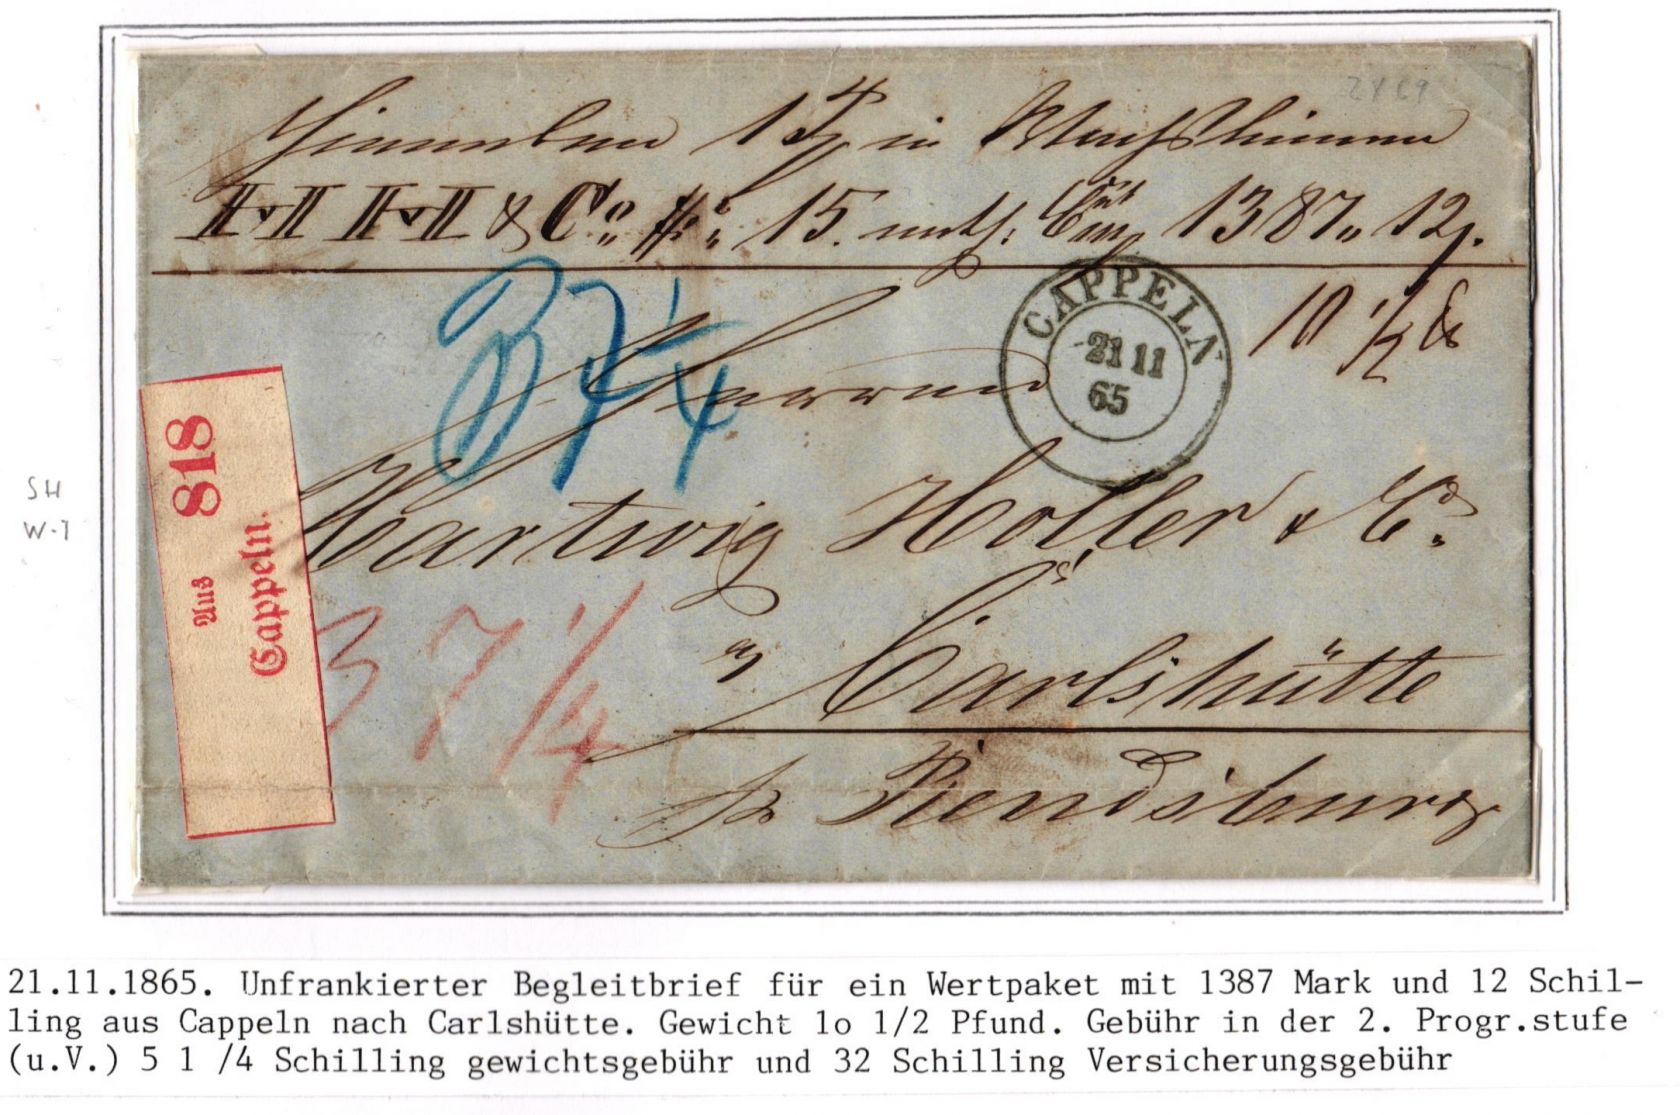 2469
Hieneben 1 in Wachsleinen
H H & Co. #: 15. enth: Crt 1387 „ 12 s.
10 1/2 ℔
CAPPELN
21 11
65
37 1/4
Herren
818
Aus
Cappeln.
SH
W-1
Hartwig Holler & Co.
37 1/4
zu Carlshütte
pr Rendsburg
21.11.1865. Unfrankierter Begleitbrief für ein Wertpaket mit 1387 Mark und 12 Schil-
ling aus Cappeln nach Carlshütte. Gewicht lo 1/2 Pfund. Gebühr in der 2. Progr.stufe
(u.V.) 5 1 /4 Schilling gewichtsgebühr und 32 Schilling Versicherungsgebühr